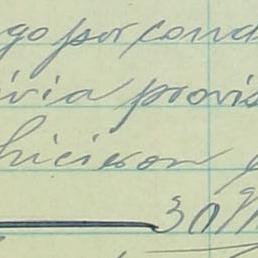 go por cond
ivia provis
hicieron
30